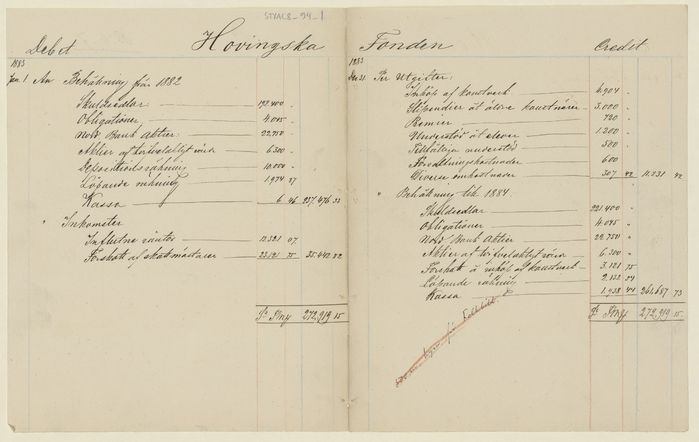 STYACS_94_1
Debet Hovingska Fonden Credit
1883
Jan. 1 An Behållning från 1882
Skuldsedlar 192.400 "
Obligationer 4.045 "
Nord. Bank Aktier 22,750
Aktier af tvifvelaktigt värde 6.300 "
Depositionsräkning 10.000 "
Löpande räkning 1,974
Kassa 6 46 237,476 33
" Inkomster
Influtne räntor 12.321 07
Förskott af skattmästaren 23,121 75 35.442 82
S:a Rmf 272,919 15
1883
Dec. 31. Per Utgifter:
Inköp af konstverk 6,904 "
Stipendier åt äldre konstnärer 3.000 "
Premier 720 "
Understöd åt elever 1.200 "
Tillfälliga understöd 500 "
Förvaltningskostnader 600
Diverse omkostnader 307 42 11,231 42
" Behållning till 1884
Skuldsedlar 221.400 "
Obligationer 4.045 "
Nord. Bank Aktier 22,750 "
Aktier af tvifvelaktigt värde 6.300 "
Förskott å inköp af konstverk 3.121 75
Löpande räkning 2.132 54
Kassa 1,938 44 261,687 73
S:a Rmf 272,919 15